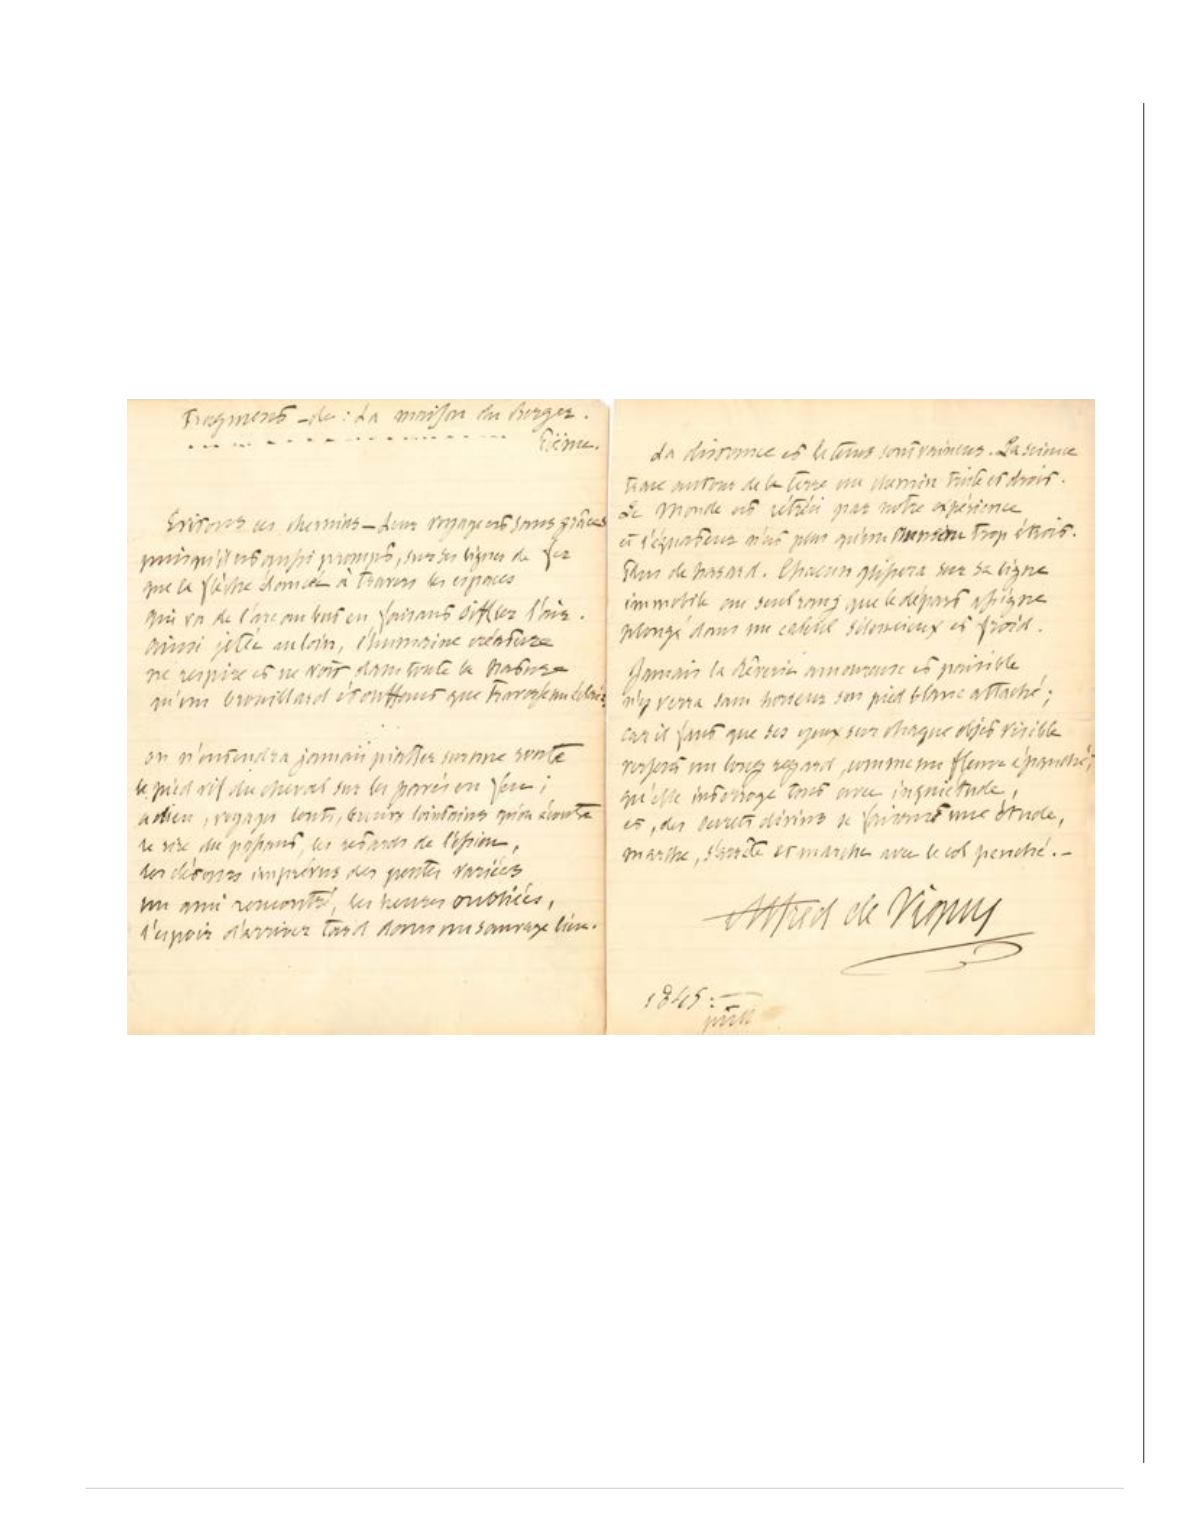 Fragment – de : La maison du Berger.
Poëme.
Évitons ces chemins – Leur voyage est sans grâces
puisqu'il est aussi prompt, sur ses lignes de fer
que la flèche lancée à travers les espaces
qui va de l'arc au but en faisant siffler l'air.
ainsi jetée au loin, l'humaine créature
ne respire et ne voit dans toute la nature
qu'un brouillard étouffant que traverse un éclair
on n'entendra jamais piaffer sur une route
le pied vif du cheval sur les pavés en feu ;
adieu, voyages lents, bruits lointains qu'on écoute
le rire du passant, les retards de l'essieu,
les détours imprévus des pentes variées
un ami rencontré, les heures oubliées,
l'espoir d'arriver tard dans un sauvage lieu.
La distance et le tems sont vaincus. La science
trace autour de la terre un chemin triste et droit.
Le Monde est rétréci par notre expérience
et l'équateur n'est plus qu'un anneau trop étroit.
Plus de hasard. Chacun glissera sur sa ligne
immobile au seul rang que le départ assigne
plongé dans un calcul silencieux et froid.
Jamais la Rêverie amoureuse et paisible
n'y verra sans horreur son pied blanc attaché ;
car il faut que ses yeux sur chaque objet visible
versent un long regard, comme un fleuve épanché ;
qu'elle interroge tout avec inquiétude,
et, des secrets divins se faisant une étude,
marche, s'arrête et marche avec le col penché. –
Alfred de Vigny
1845 :